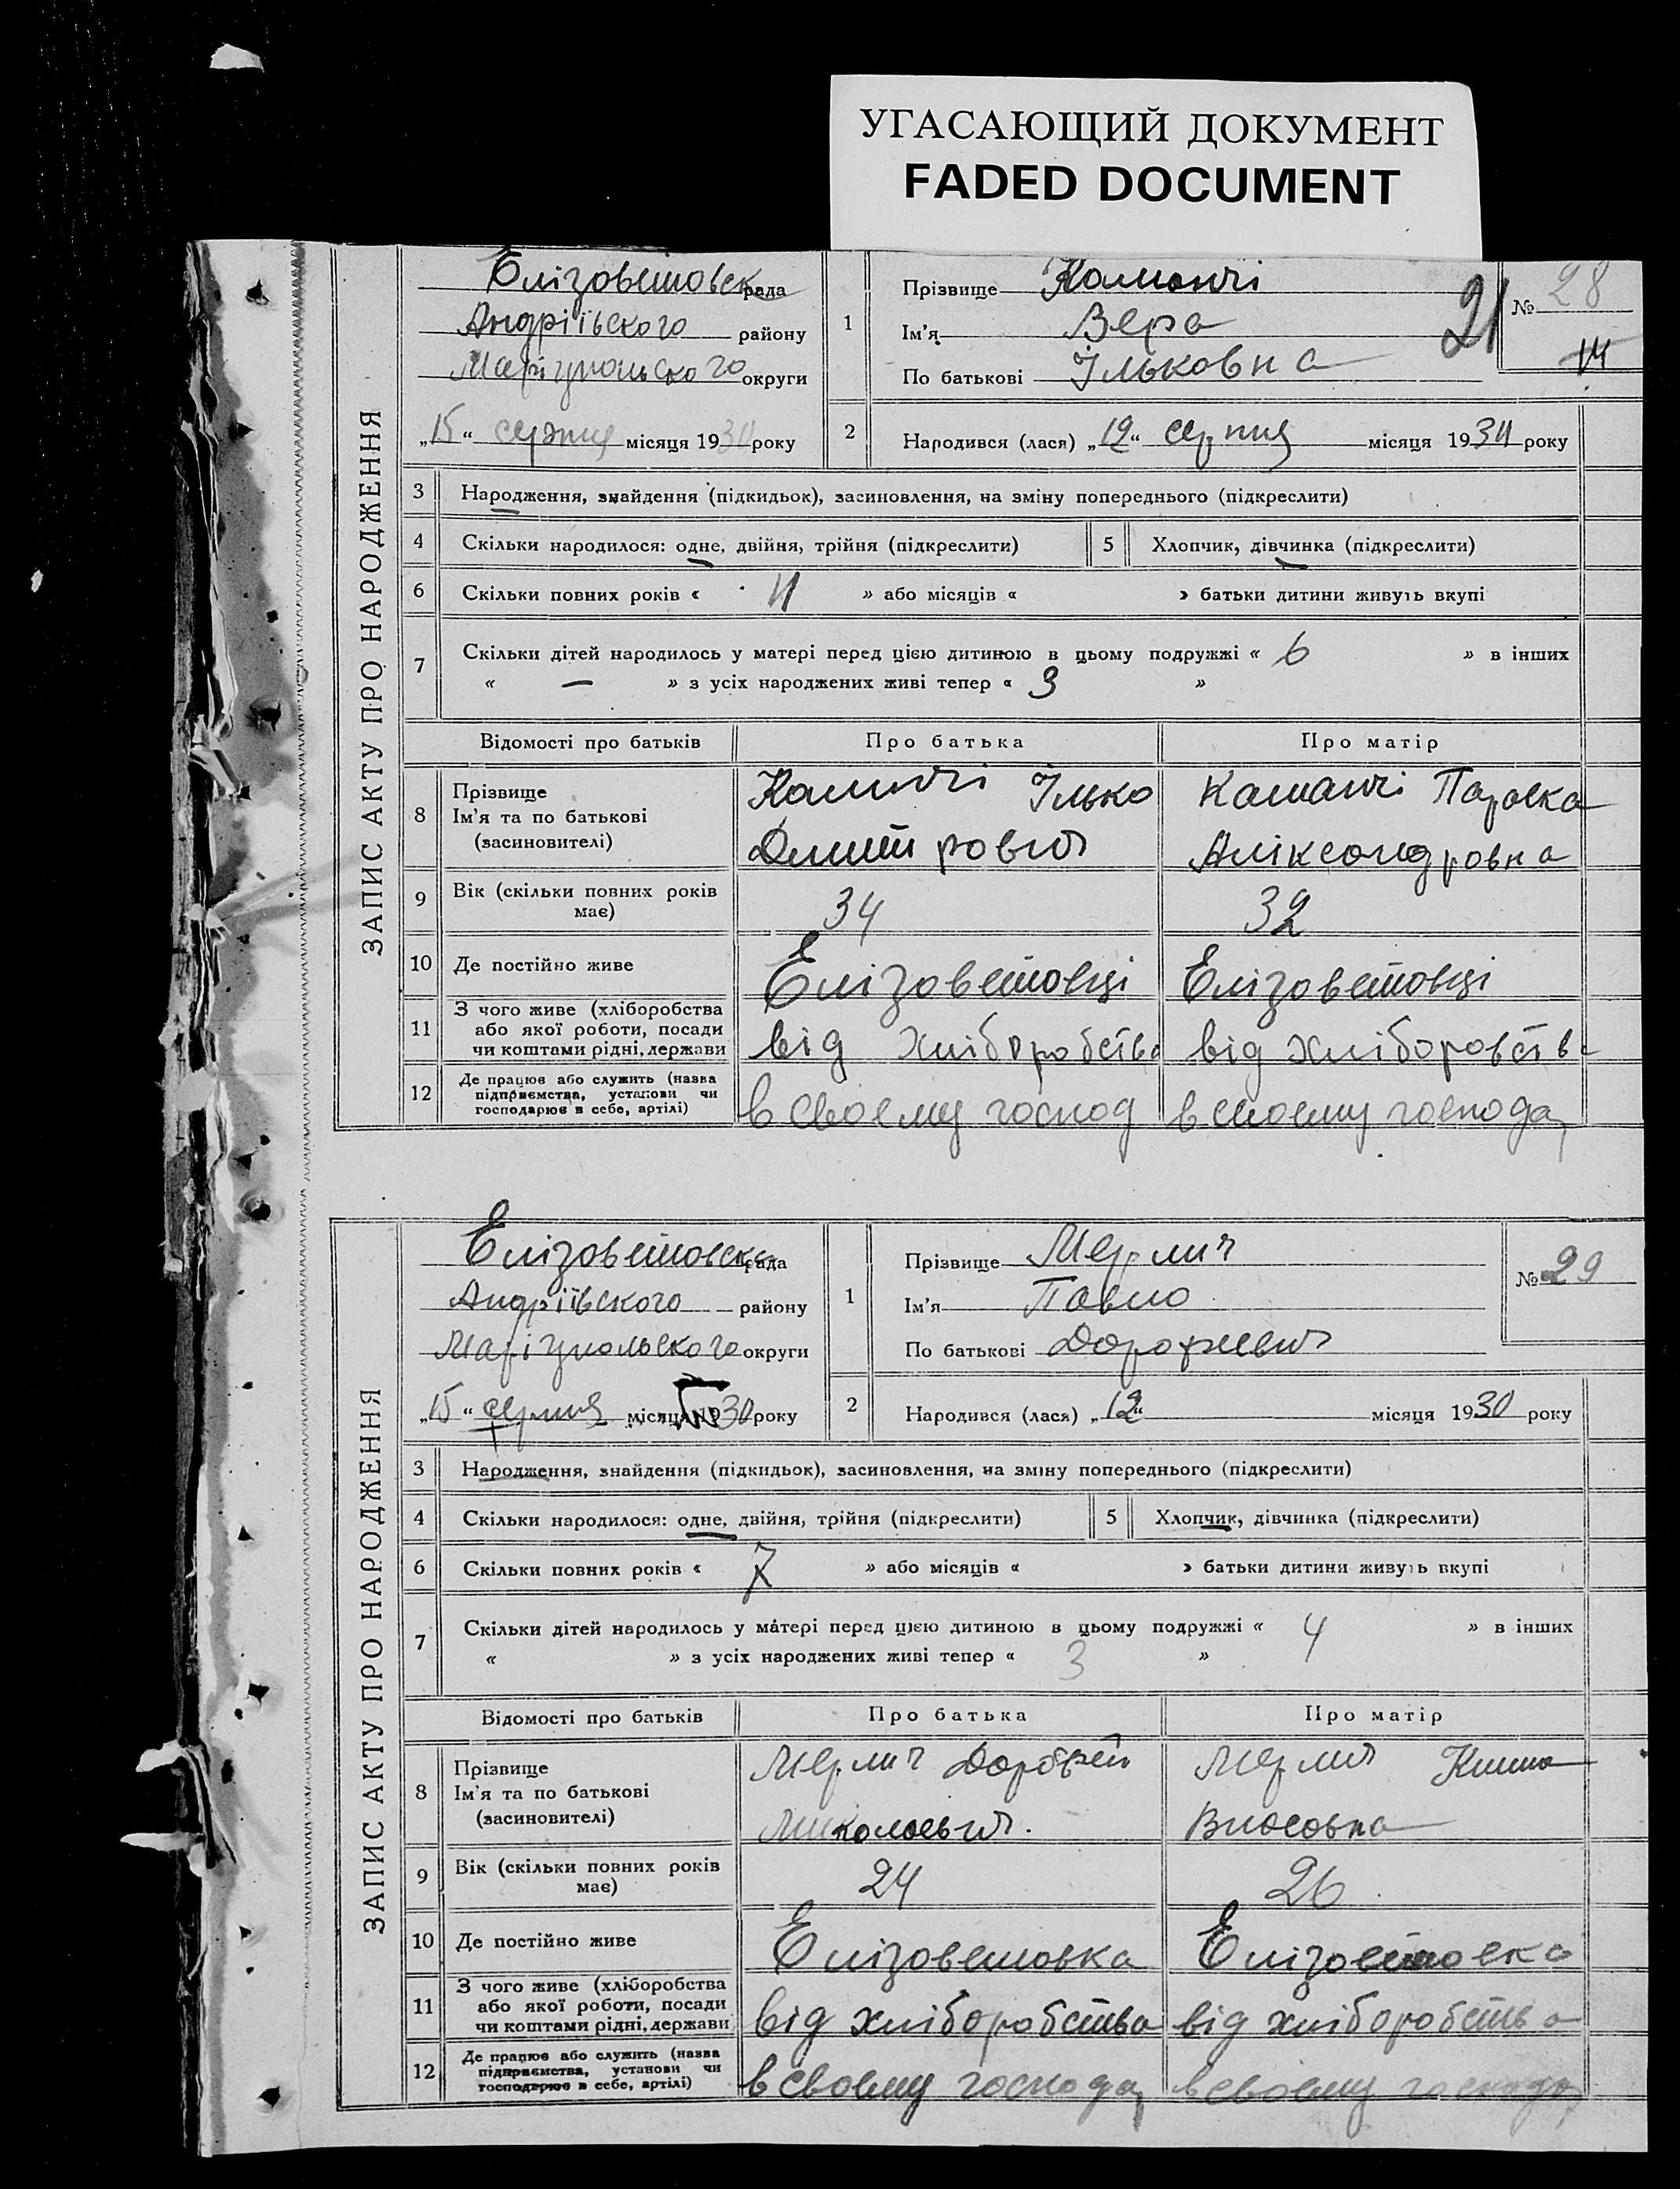 УГАСАЮЩИЙ ДОКУМЕНТ
FADED DOCUMENT
ЗАПИС АКТУ ПРО НАРОДЖЕННЯ
Елізоветовска рада
Андріївського району
Маріупольського округи
„15“ серпня місяця 1930 року
1
Прізвище
Ім'я Вера
По батькові Ільковна
21
№ 28
2
Народився (лася) „12“ серпня місяця 1930 року
3 Народження, знайдення (підкидьок), засиновлення, на зміну попереднього (підкреслити)
4 Скільки народилося: одне, двійня, трійня (підкреслити) 5 Хлопчик, дівчинка (підкреслити)
6 Скільки повних років « » або місяців « » батьки дитини живуть вкупі
7 Скільки дітей народилось у матері перед цією дитиною в цьому подружжі « 6 » в інших
« — » з усіх народжених живі тепер « 3 »
Відомості про батьків Про батька Про матір
8 Прізвище
Ім'я та по батькові
(засиновителі)
Ілько
Дмитрович
Параска
Аліксандровна
9 Вік (скільки повних років має) 34 32
10 Де постійно живе Елізоветовці Елізоветовці
11 З чого живе (хліборобства або якої роботи, посади чи коштами рідні, держави від хліборобства від хліборобства
12 Де працює або служить (назва підприємства, установи чи господарює в себе, артілі) в своему господ в своему господа
ЗАПИС АКТУ ПРО НАРОДЖЕННЯ
Елізоветовска рада
Андріївського району
Маріупольського округи
„15“ серпня місяця 1930 року
1
Прізвище Мерлич
Ім'я Павло
По батькові Дорофиевич
№ 29
2
Народився (лася) „12“ місяця 1930 року
3 Народження, знайдення (підкидьок), засиновлення, на зміну попереднього (підкреслити)
4 Скільки народилося: одне, двійня, трійня (підкреслити) 5 Хлопчик, дівчинка (підкреслити)
6 Скільки повних років « 7 » або місяців « » батьки дитини живуть вкупі
7 Скільки дітей народилось у матері перед цією дитиною в цьому подружжі « 4 » в інших
« » з усіх народжених живі тепер « 3 »
Відомості про батьків Про батька Про матір
8 Прізвище
Ім'я та по батькові
(засиновителі)
Мерлич Дорофей
Миколаевич
Мерлич
Власовна
9 Вік (скільки повних років має) 24 26
10 Де постійно живе Елізоветовка Елізоветовка
11 З чого живе (хліборобства або якої роботи, посади чи коштами рідні, держави від хліборобства від хліборобства
12 Де працює або служить (назва підприємства, установи чи господарює в себе, артілі) в своему господа в своему господа